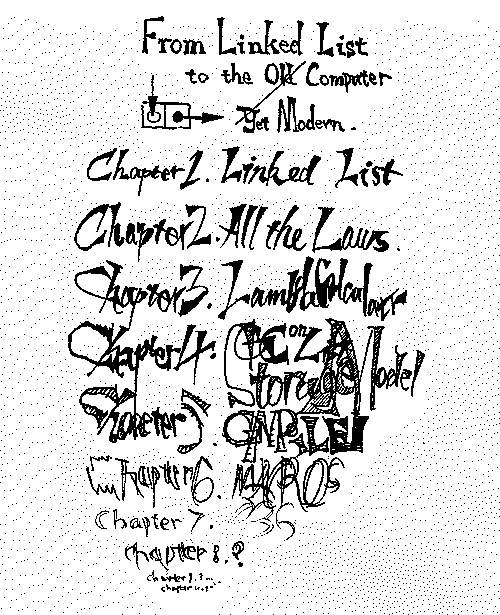 From Linked List
to the Old Computer
Yet Modern.
Chapter 1. Linked List
Chapter 2. All the Laws.
Chapter 3. Lambda Calculator
Chapter 4. GC on Storage Model
Chapter 5.
Chapter 6. MACROS
Chapter 7.
Chapter 8.?